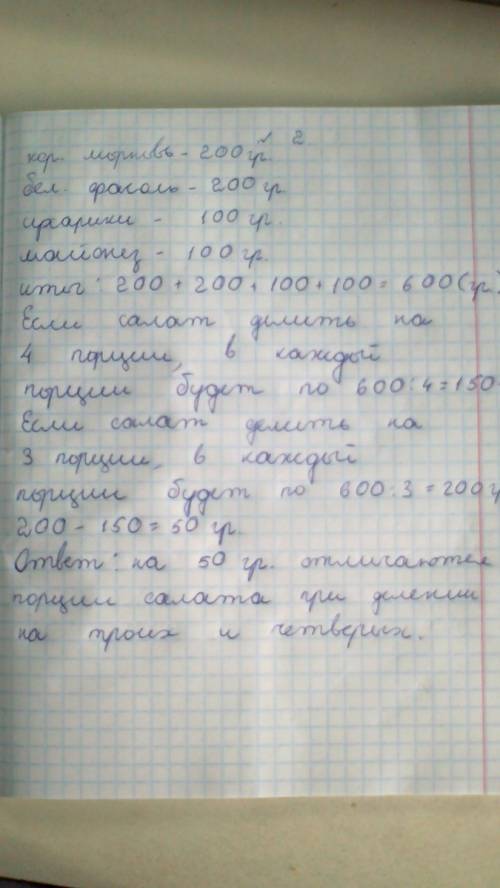 2
кор. морковь - 200 гр.
бел. фасоль - 200 гр
сухарики - 100 гр.
майонез - 100 гр.
итог: 200 + 200 + 100 + 100 = 600 (гр.)
Если салат делить на
4 порции, в каждый
порции будет по 600 : 4 = 150
Если салат делить на
3 порции, в каждый
порции будет по 600 : 3 = 200 г
200 - 150 = 50 гр.
Ответ: на 50 гр. отличаются
порции салата при делении
на троих и четверых.